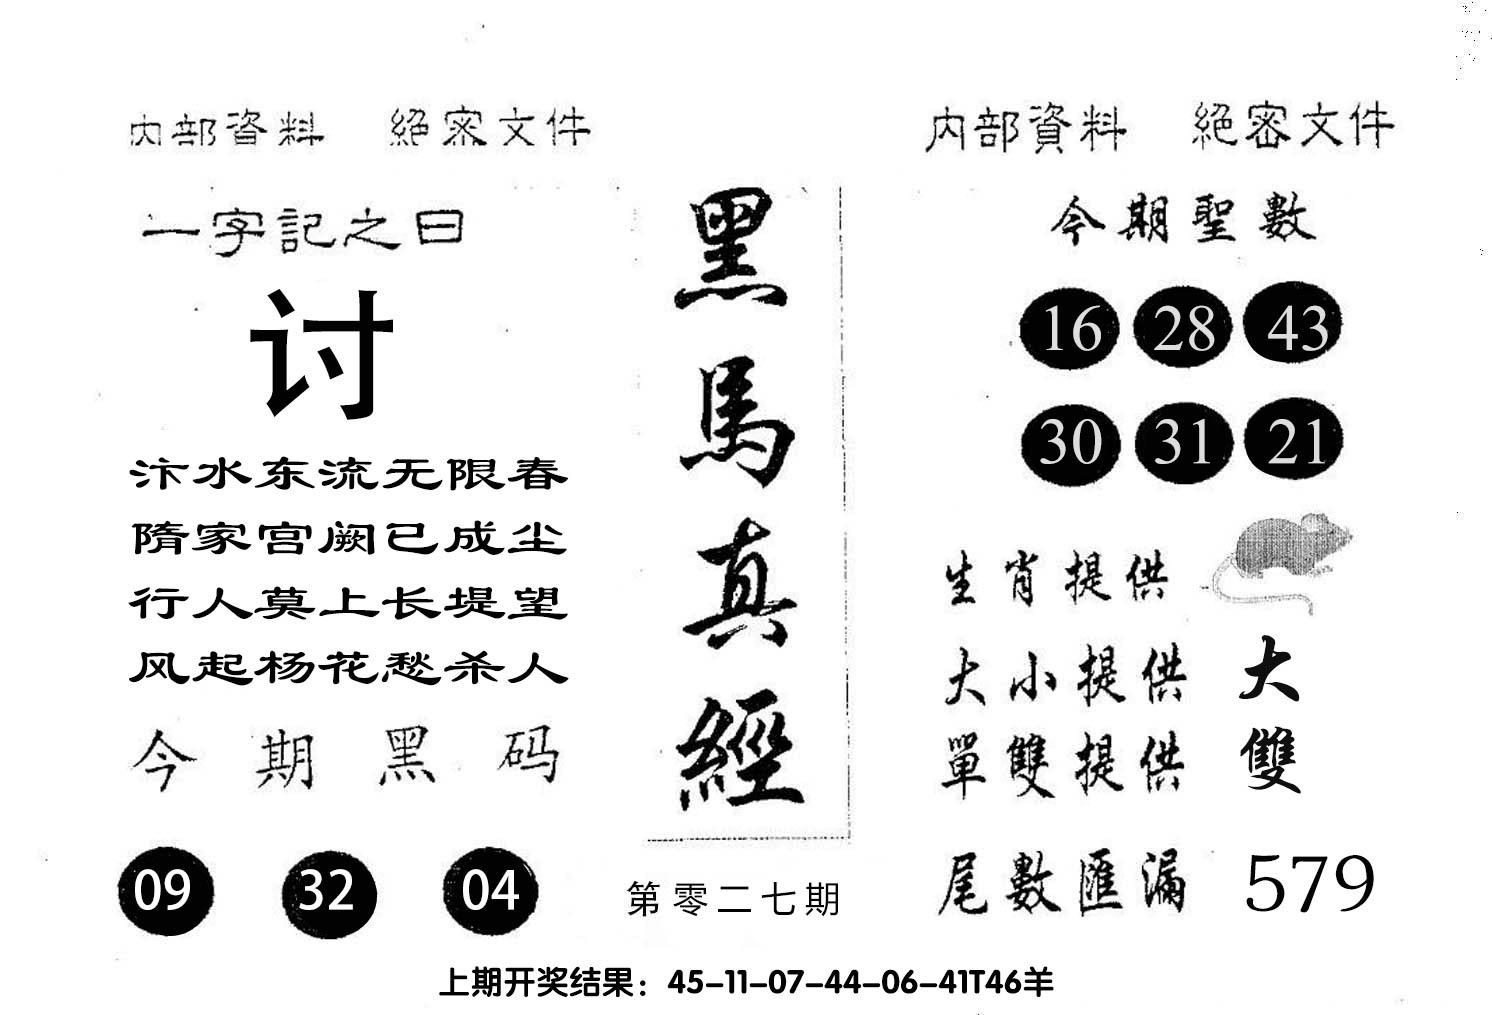 内部資料 絕密文件
一字記之曰
讨
汴水东流无限春
隋家宫阙已成尘
行人莫上长堤望
风起杨花愁杀人
今期黑码
09 32 04
黑馬真經
第零二七期
内部資料 絕密文件
今期聖數
16 28 43
30 31 21
生肖提供
大小提供 大
單雙提供 雙
尾數匯漏 579
上期开奖结果：45-11-07-44-06-41T46羊